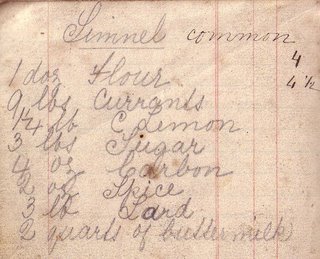 Simnel common
4
1 doz Flour 4 ½
9 lbs Currants
1/4 lb C Lemon
3 lbs Sugar
4 oz Carbon
2 oz Spice
3 lb Lard
2 quarts of buttermilk